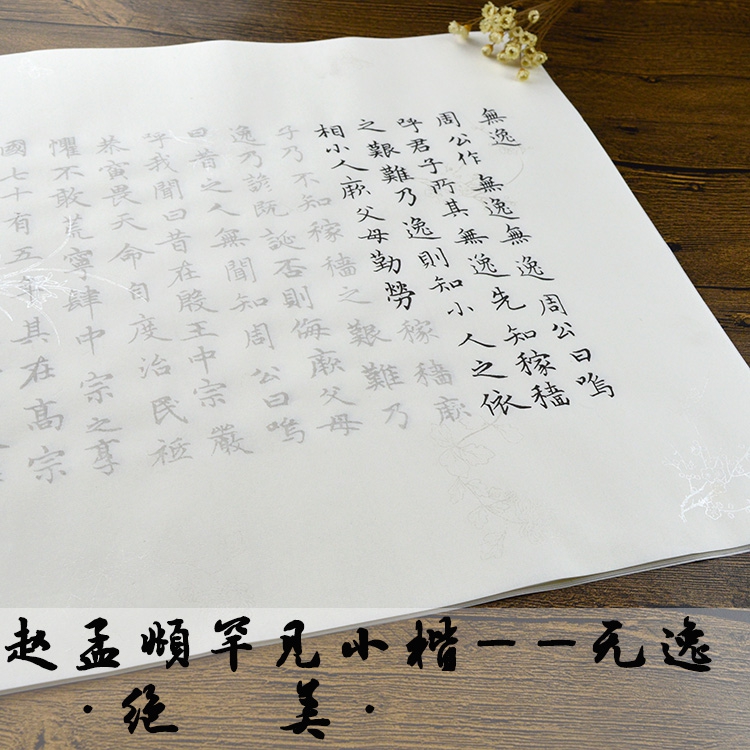 無逸
周公作無逸無逸周公曰嗚
呼君子所其無逸先知稼穡
之艱難乃逸則知小人之依
相小人厥父母勤勞稼穡厥
子乃不知稼穡之艱難乃
逸乃諺既誕否則侮厥父母
曰昔之人無聞知周公曰嗚
呼我聞曰昔在殷王中宗嚴
恭寅畏天命自度治民祗
懼不敢荒寧肆中宗之享
國七十有五年其在高宗
赵孟頫罕见小楷——无逸
·绝 美·